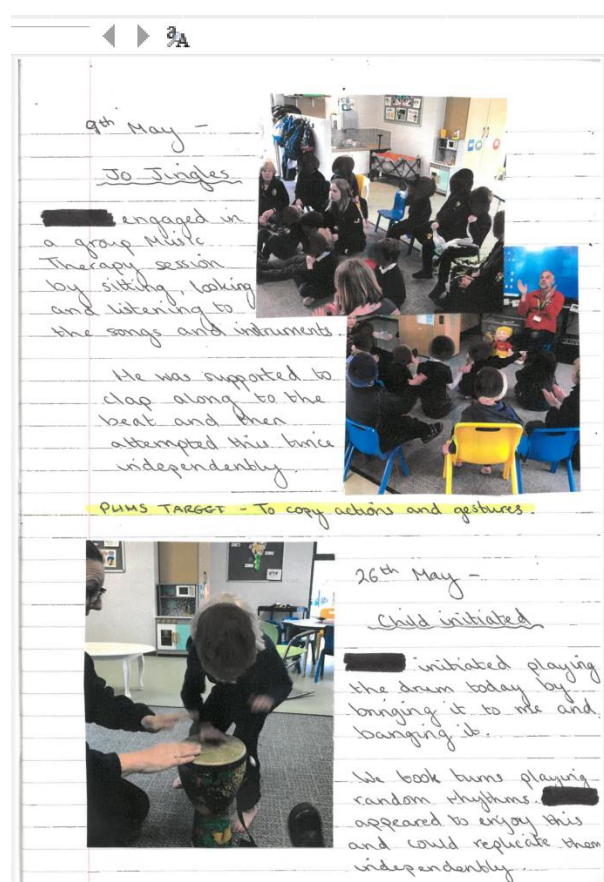 9th May -
Jo Jingles
engaged in
a group Music
Therapy session
by sitting, looking
and listening to
the songs and instruments.
He was supported to
clap along to the
beat and then
attempted this twice
independently.
PLIMS TARGET - To copy actions and gestures.
26th May -
Child initiated
initiated playing
the drum today by
bringing it to me and
banging it.
We took turns playing
random rhythms.
appeared to enjoy this
and could replicate them
independently.